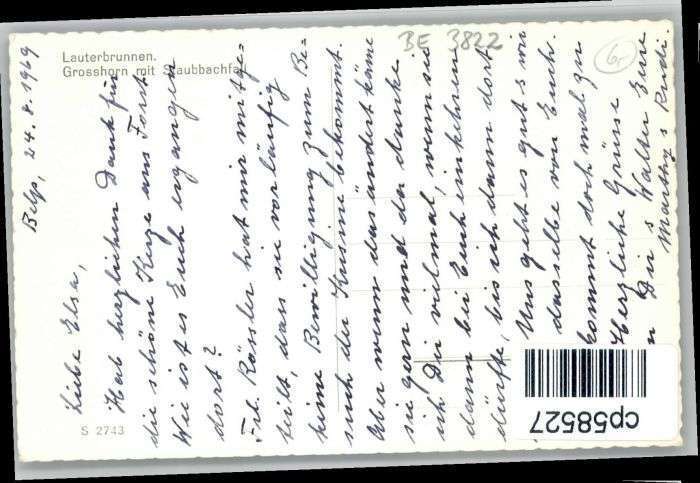 Lauterbrunnen.
Grosshorn mit Staubbachfall
BE 3822
6.-
S 2743
cp58527
Belp, 24.8.1969
Liebe Elsa,
Hab herzlichen Dank für
die schöne Karte aus Forst
Wie ist es Euch ergangen
dort?
Frl. Rössler hat mir mitge=
teilt, dass sie vorläufig
keine Bewilligung zum Be=
such der Kusine bekommt.
Aber wenn das ändert käme
sie gern und da danke
ich Dir vielmal, wenn sie
dann bei Euch einkehren
dürfte, bis ich dann dort
Uns geht es gut & wir
dasselbe von Euch.
kommt doch mal zu
Herzliche Grüsse
Dir & Walter Eure
Marthy & Rudi.